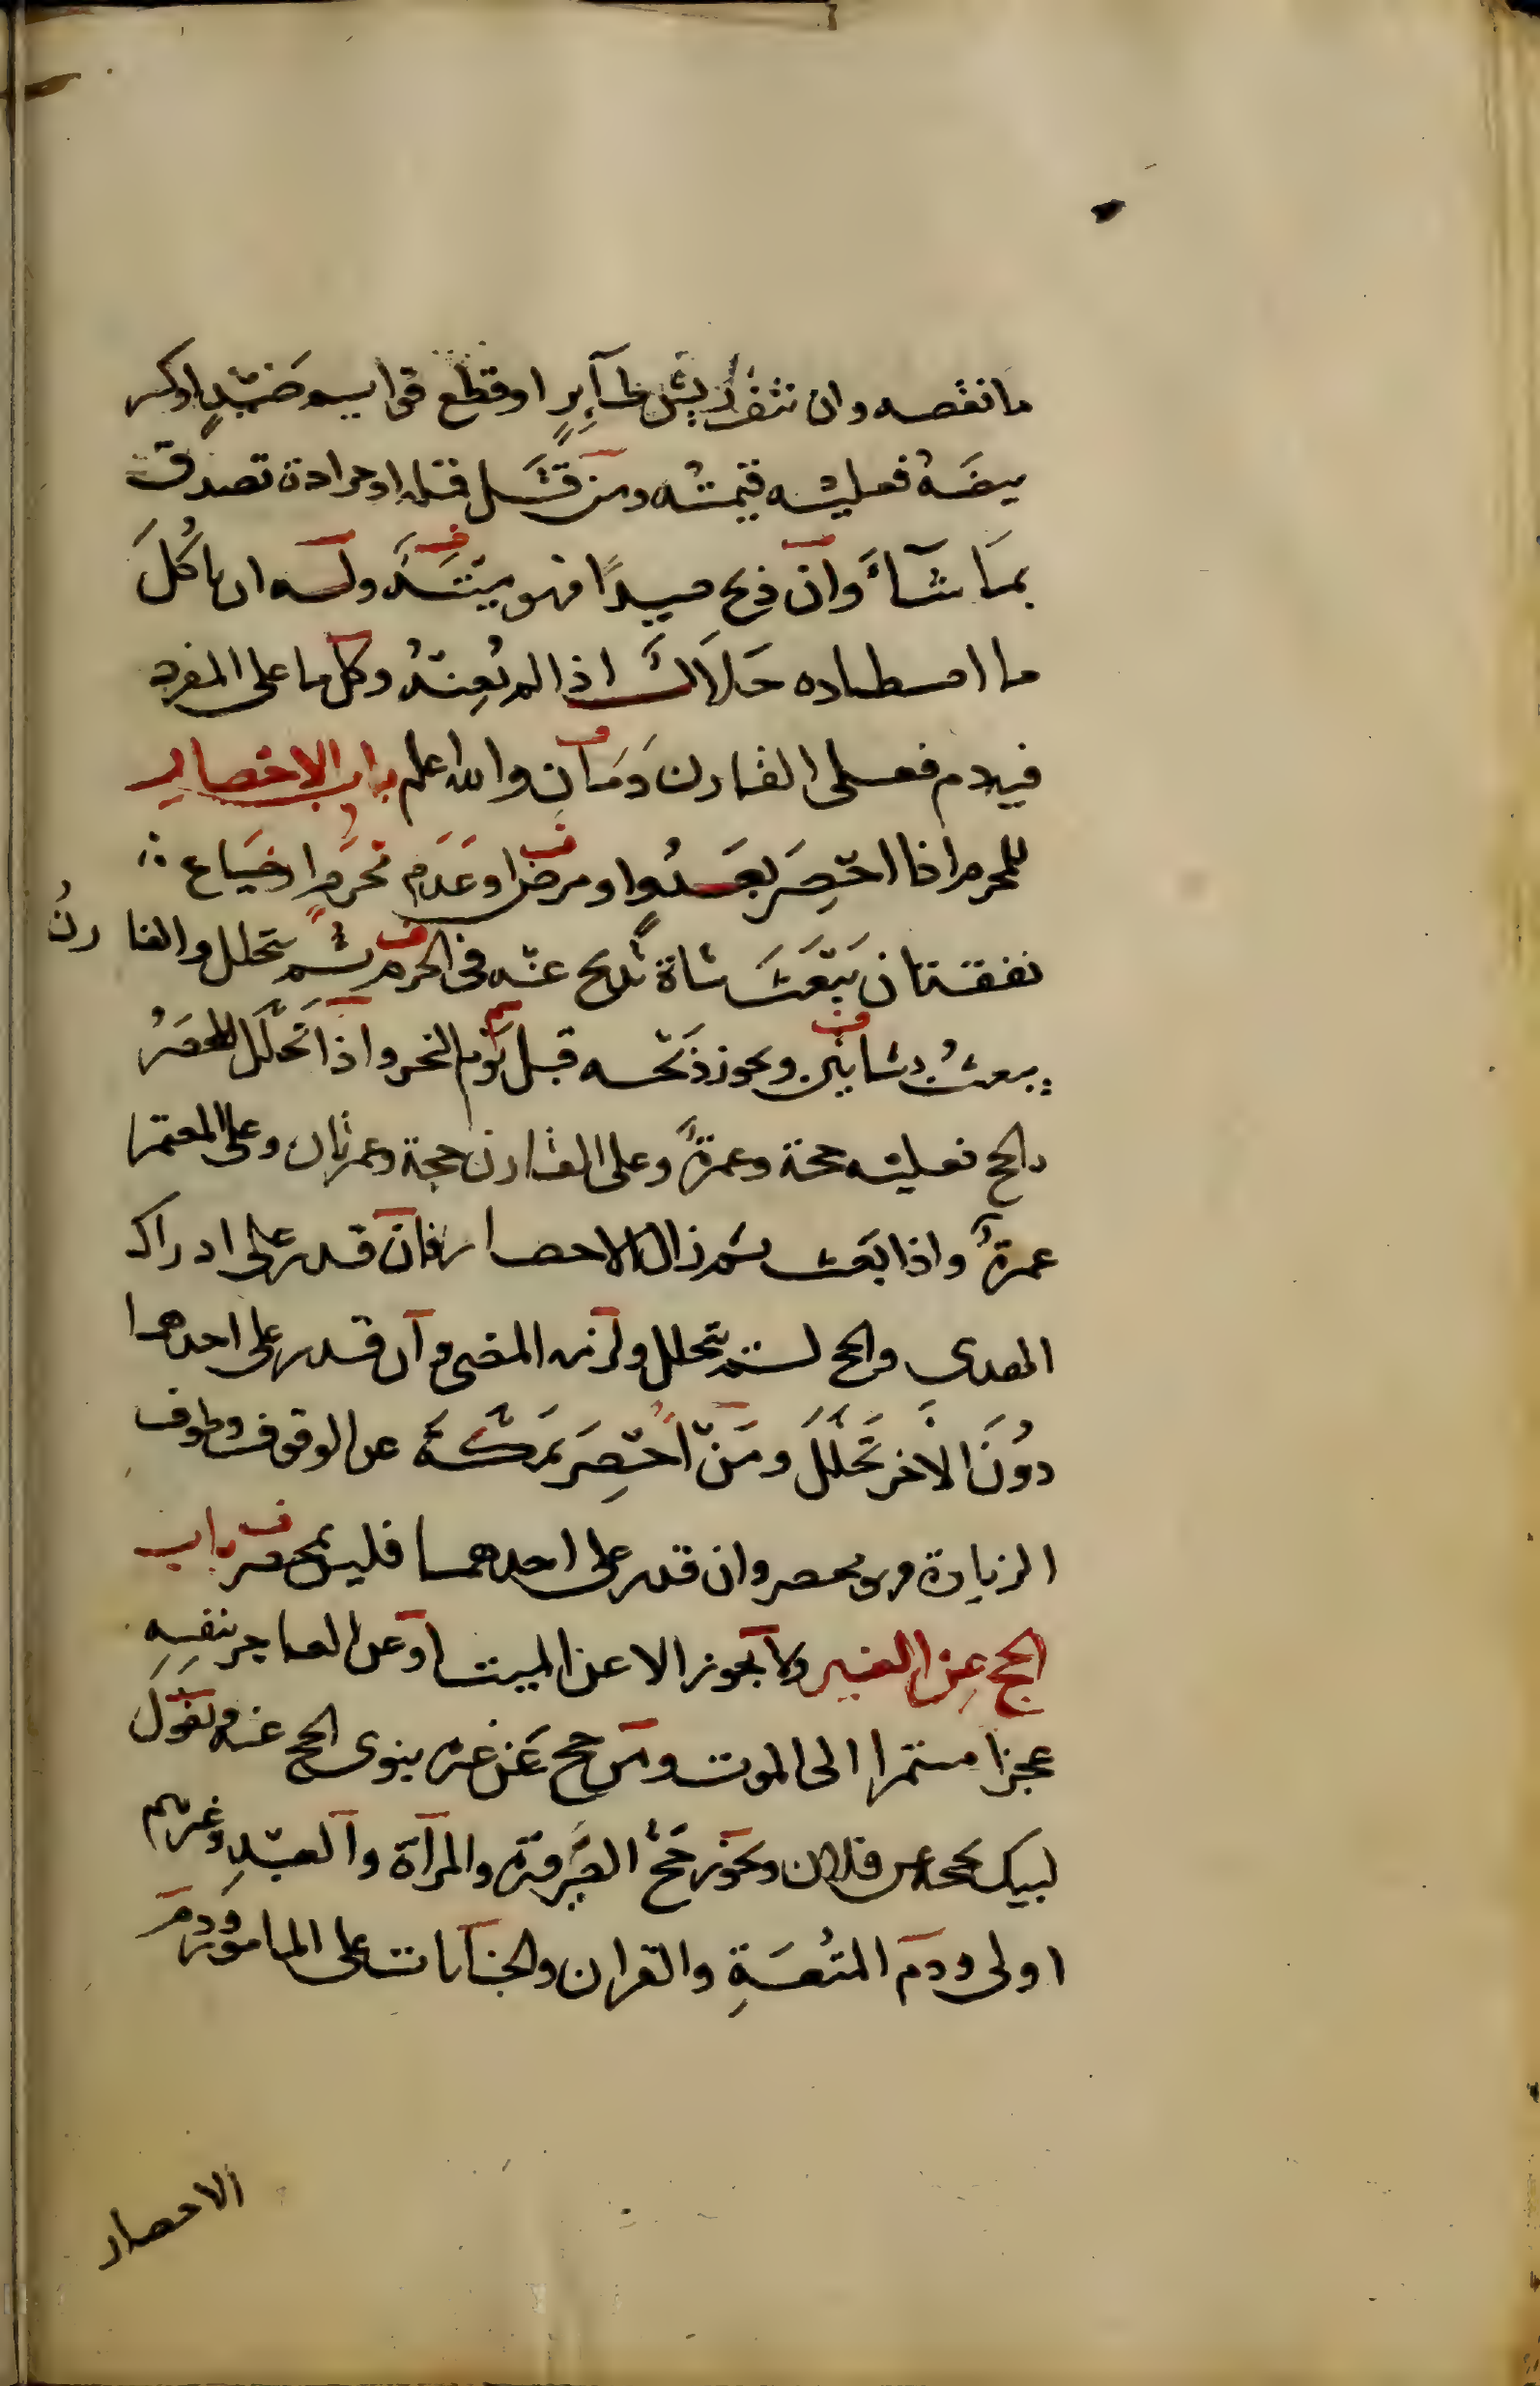 ما نقصه وان نتف ريش طآيرٍ او قطع قوايم صَيْدٍ او كسر
بيضَهُ فعليْه قيمتُه ومن قتَل قملة او جرادة تصدق
بمَا شآءَ وان ذبح صيدًا فهو ميْتَةٌ وله ان ياكُلَ
ما اصطاده حَلَالٌ اذا لم يُعِنْهُ وكل ما على المفرد
فيه دم فعلى القارن دَمَانِ والله اعلم باب الاحصار
المحرم اذا احْصِرَ بعَدُوٍ او مرض او عَدَمِ محْرَمٍ او ضيَاع
نفقته ان يَبْعَثَ شاة تذبح عنْه في الحرم ثم يتحلل والقارنُ
يبعثُ بشاتيْن ويجوز ذبْحه قبل يَوْم النحر واذا تَحلَّلَ المحصَرُ
بالحج فعليْه حجة وعمرةٌ وعلى القارن حجة وعمرتان وعلى المعتمر
عمرةٌ واذا بَعَث ثم زال الاحصار فان قدر على ادراك
الهدي والحج لم يتحلل ولزمه المضي وان قدر على احدهما
دُوْنَ الْاخر تَحَلَّلَ ومَنْ احْصِرَ بمَكَّةَ عن الوقوف وطواف
الزيارة فهو محصر وان قدر على احدهما فليس بمحصر باب
الحج عِن الغير ولا يجوز الا عن الميت او عن العاجز بنفسِهِ
عجزا مستمرا الى الموت ومن حج عَن غيره ينوي الحج عنه ويقولَ
لبيك بحجة عن فلان ويجُوز حَجُّ الصَّرورة والمرأة والعبْدِ وغيرهم
اولى ودم المتْعَةِ والقران والجنايات على المامور ودم
الاحصار